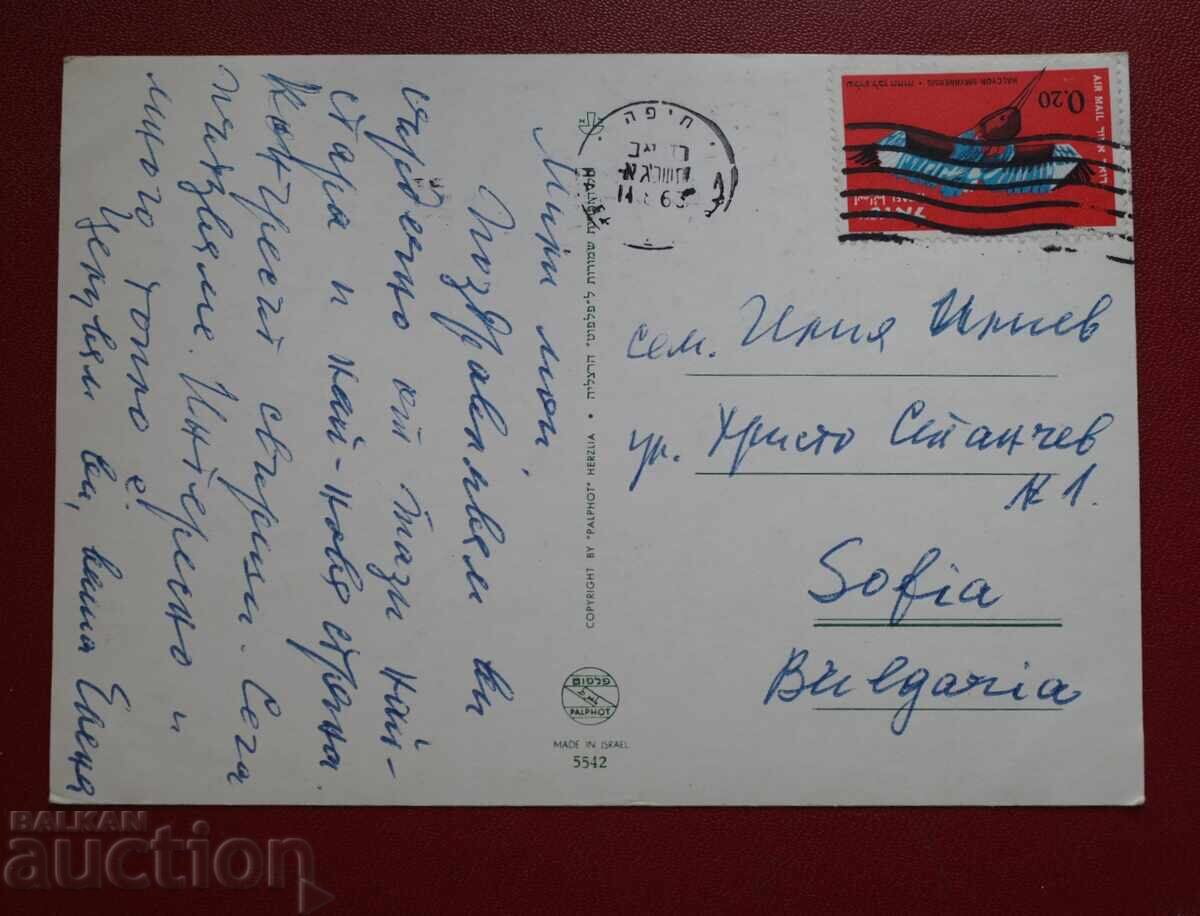 Мили мои,
Поздравлявам ви
сърдечно от тази най-
стара и най-нова страна.
Конгресът свърши. Сега
пътуваме. Интересно и
много топло е.
Целувам ви, ваша Евгения
сем. Илия Илиев
ул. Христо Станчев
№ 1.
Sofia
Bulgaria
COPYRIGHT BY "PALPHOT" HERZLIA • כל הזכויות שמורות ל"פלפוט" הרצליה
PALPHOT
MADE IN ISRAEL
5542
חיפה
AIR MAIL דואר אויר
0.20
HALCYON SMYRNENSIS
ישראל
BALKAN
auction